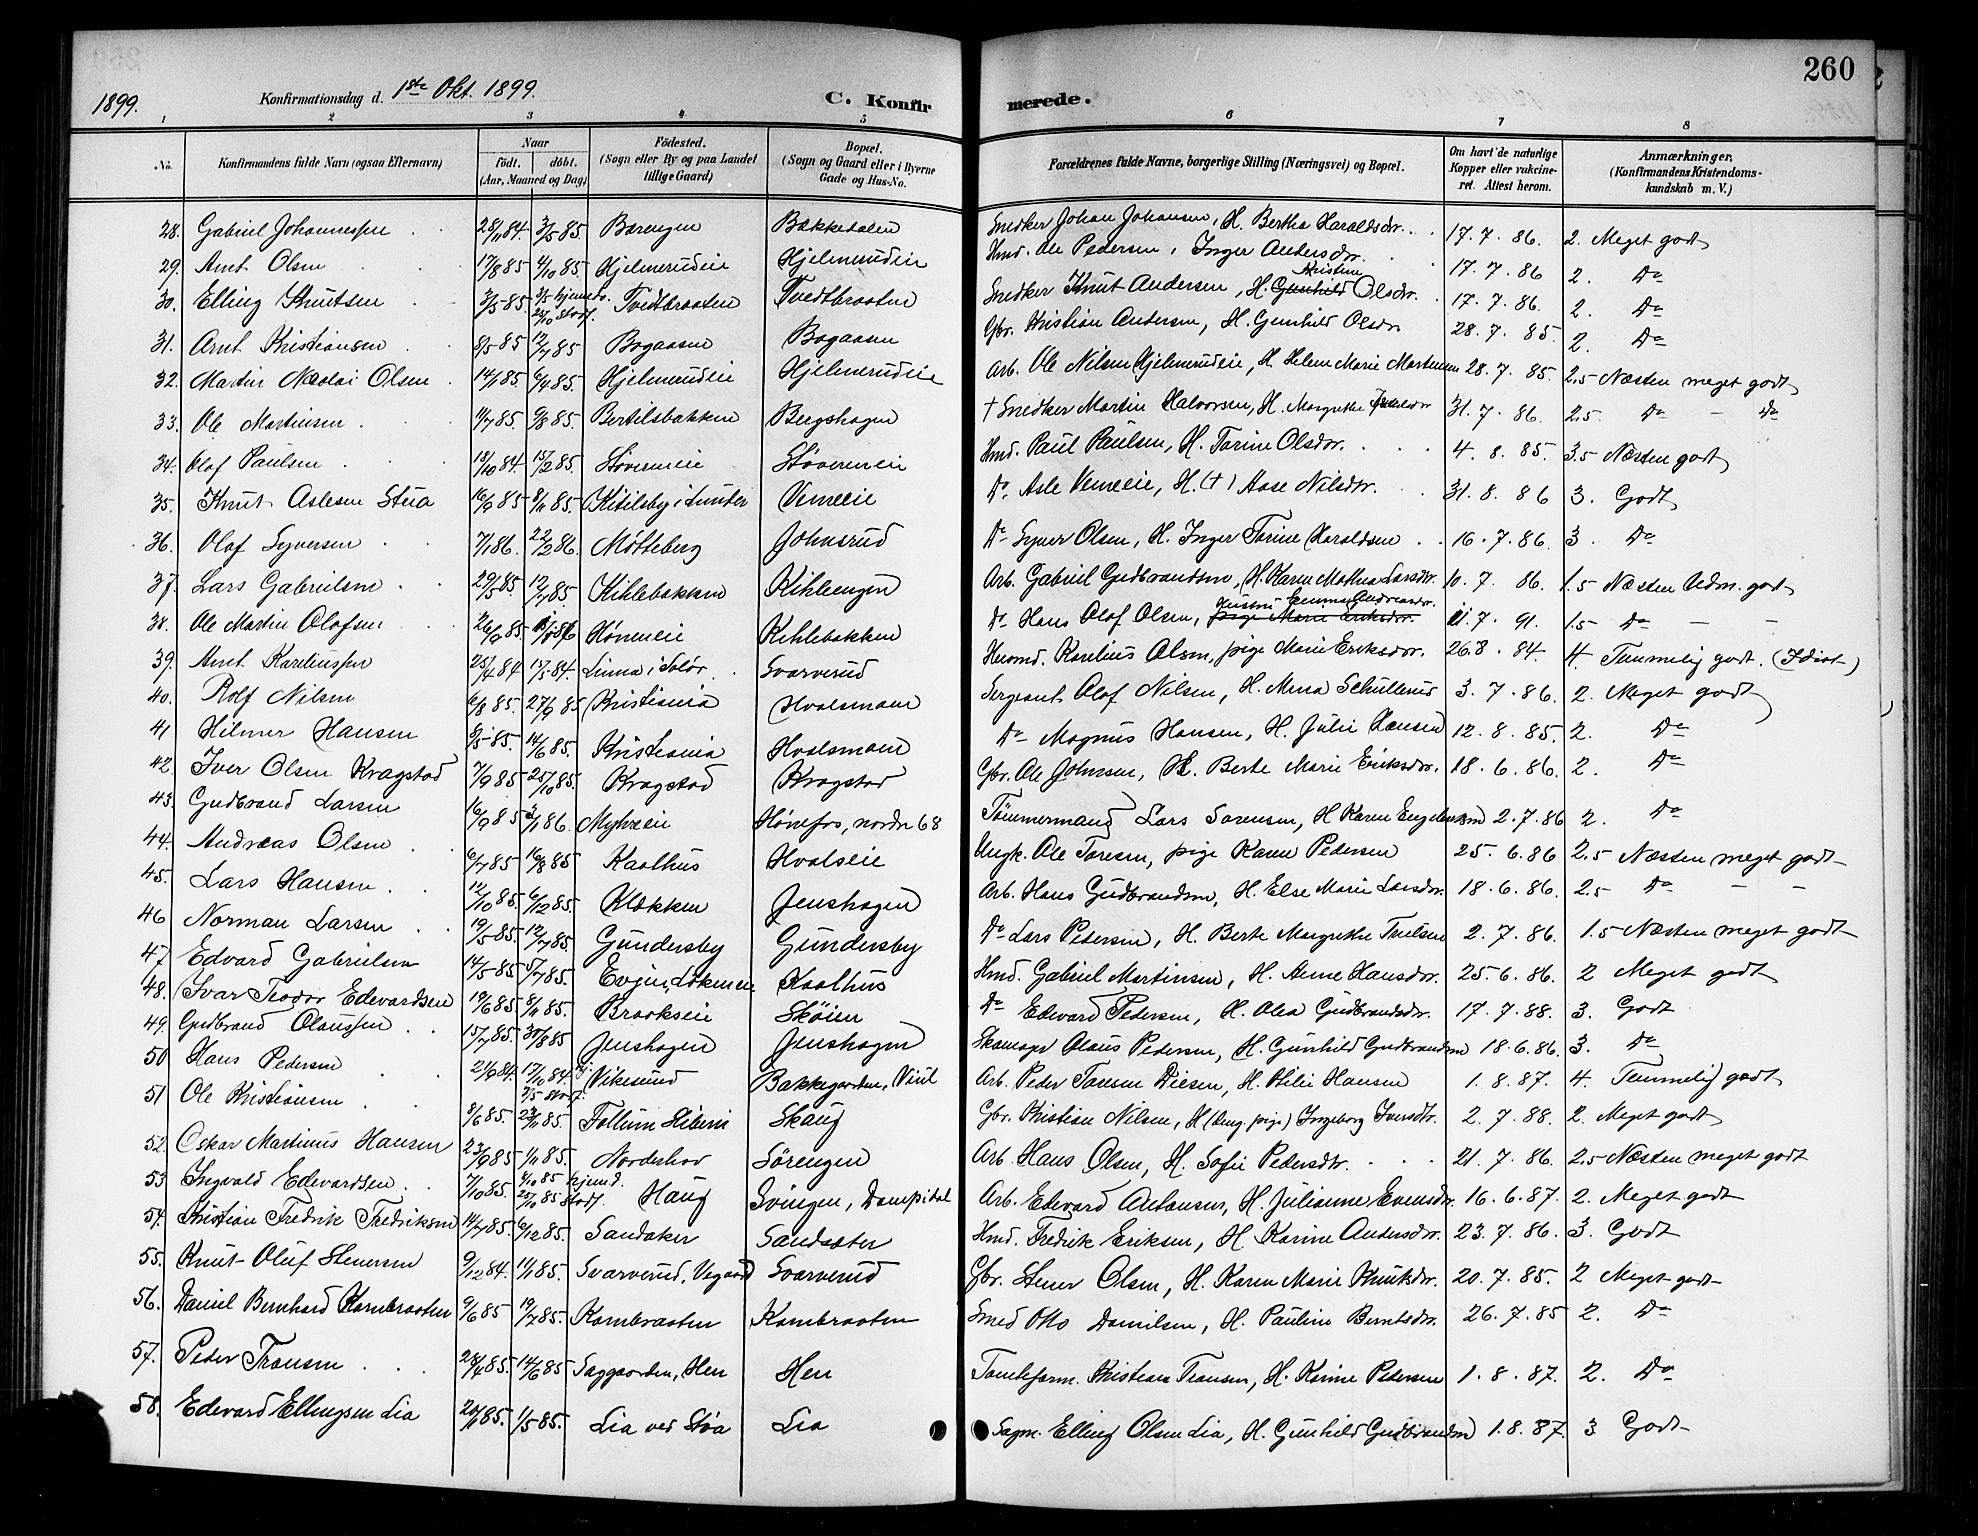 260
1899. Konfirmationsdag d. 1ste Okt. 1899. C. Konfirmerede.
1 2 3 4 5 6 7 8
No. Konfirmandens fulde Navn (ogsaa Efternavn) Naar født. døbt. (Aar, Maaned og Dag) Fødested. (Sogn eller By og paa Landet tillige Gaard) Bopæl. (Sogn og Gaard eller i Byerne Gade og Hus-No. Forældrenes fulde Navne, borgerlige Stilling (Næringsvei) og Bopæl. Om havt de naturlige Kopper eller vakcineret. Attest herom. Anmærkninger. (Konfirmandens Kristendomskundskab m. V.)
28. Gabriel Johannessen 28/11 84. 3/5 85. Børengen Bakkedalen Snedker Johan Johansen, H. Bertha Haraldsdr. 17.7.86. 2. Meget godt
29. Arnt Olsen 17/8 85 4/10 85. Hjelmerudeie Hjelmerudeie Hmd. Ole Pedersen, Inger Andersdr. 17.7.86 2. Do
30. Elling Knutsen 3/5 85. 3/5 hjemded. 25/10 stadf. Tvedtbraaten Tvedtbraaten Snedker Knut Andersen, H. Gunhild Kristine Olsdr. 17.7.86. 2. Do
31. Arnt Kristiansen 8/5 85 12/7 85 Bogaasen Bogaasen Gbr. Kristian Andersen, H. Gunhild Olsdr 28.7.85. 2. Do
32. Martin Nicolai Olsen 14/1 85 6/4 85. Hjelmerudeie Hjelmerudeie Arb. Ole Nilsen Hjelmerudeie, H. Helene Marie Martinsen 28.7.85. 2,5 Næsten meget godt
33. Ole Martinsen 11/7 85. 9/8 85. Bertilsbakken Bergshagen † Snedker Martin Halvorsen, H. Margrethe 31.7.86. 2,5 Do - Do
34. Olaf Paulsen 18/10 84. 15/2 85. Støvereneie Støvereneie Hmd. Paul Paulsen, H. Torine Olsdr. 4.8.85. 3.5 Næsten godt
35. Knut Aslesen Stua 16/9 85 8/11 85. Kitilsby i Lunder Vemeeie Do. Asle Vemeeie, H. (†) Aase Nilsdtr. 31.8.86 3. Godt
36. Olaf Syversen 7/1 86. 22/2 86. Møtteberg Johnsrud Do Syver Olsen, H. Inger Torine Haraldsen 16.7.86. 3. Do
37. Lars Gabrielsen 29/5 85. 12/7 85. Kihlebakken Kihleengen Arb. Gabriel Gudbrandsen, H. Karen Mathea Larsdtr. 10.7.86. 1.5 Næsten Udm. godt
38. Ole Martin Olafsen 26/9 85. Høneneie Kihlebakken Do Hans Olaf Olsen, pige Marie Eriksdr. Hustru Gemine Andreasdr. 11.7.91. 1.5 Do - -
39. Arnt Kareliussen 25/4 84 15/5 84. Linna i Solør Svarverud Huusmd. Karelius Olsen, pige Marie Eriksdr. 26.8.84. 4. Temmelig godt. (Idiot)
40. Rolf Nilsen 6/8 85. 27/9 85 Kristiania Hvalsmoen Sergeant Olaf Nilsen, H. Mina Schullerud 3.7.86. 2. Meget godt
41 Hilmer Hansen 8/5 85. 14/6 85. Kristiania Hvalsmoen Do Magnus Hansen, H. Julie Hansen 12.8.85. 2. Do
42. Iver Olsen Kragstad 7/9 85 25/10 85. Kragstad Kragstad Gbr. Ole Johnsen, H. Berte Marie Eriksdr. 18.6.86. 2. Do
43. Gudbrand Larsen 16/9 85 3/1 86. Myhreeie Hønefos, nordr 68 Tømmermand Lars Sørensen, H Karen Engebretsen 2.7.86 2. Do
44. Andreas Olsen 6/7 85 16/8 85 Kaalhus Hvalseie Ungk. Ole Toresen, pige Karen Pedersen 25.6.86 2.5 Næsten meget godt
45. Lars Hansen 12/10 85. 6/12 85. Klækken Jenshagen Arb. Hans Gudbrandsen, H. Else Marie Larsdtr. 18.6.86. 2.5 Do - -
46 Norman Larsen 19/5 85. 12/7 85. Gundersby Gundersby Do Lars Pedersen, H. Berte Margrethe Truelsen 2.7.86. 1.5 Næsten meget godt
47. Edvard Gabrielsen 14/5 85 5/7 85. Evjen, Løkeneie Kaalhus Hmd. Gabriel Martinsen, H. Anne Hansdr. 25.6.86. 2 Meget godt
48. Ivar Teodor Edevardsen 19/6 85. 8/11 85. Braakseie Skøien Do Edevard Pedersen, H. Olea Gudbrandsdr. 17.7.88. 3. Godt
49. Gudbrand Olaussen 15/7 85. 30/8 85 Jenshagen Jenshagen Skomager Olaus Pedersen, H. Gunhild Gudbrandsen 18.6.86. 3. Do
50 Hans Pedersen 21/9 84. 17/10 84. hj. 3/5 stadf. Vikesund Bakkegaarden, Viul Arb. Peder Toresen Diesen, H. Hilie Hansen 1.8.87. 4. Temmelig godt
51 Ole Kristiansen 8/6 85. 22/11 85. Follum Skaug Gbr. Kristian Nilsen, H (Aug. pige) Ingeborg Iversdtr. 2.7.88. 2. Meget godt
52. Oskar Martinus Hansen 23/9 85 1/11 85. Norderhov Sørengen Arb. Hans Olsen, H. Sofie Pedersdtr. 21.7.86. 2,5 Næsten meget godt
53 Ingvald Edevardsen 7/10 85. 9/10 85 hjemd. 25/10 85 stadf. Haug Svingen, Dampsidal Arb. Edevard Antonsen, H. Julianne Evensdtr. 16.6.87. 2. Meget godt
54. Kristian Fredrik Fredriksen 14/7 85. 6/12 85. Sandaker Sandsæter Hmd. Fredrik Eriksen, H. Karine Andersdtr. 23.7.86. 3. Godt
55. Knut Oluf Stenersen 9/12 84. 11/1 85. Svarverud, Vegaard Svarverud Gbr. Stener Olsen, H. Karen Marie Knutsdtr. 20.7.85. 2 Meget godt
56. Daniel Bernhard Kornbraaten 9/6 85 19/7 85. Kornbraaten Kornbraaten Smed Otto Danielsen, H. Pauline Berntsdtr. 26.7.85 2. Do
57. Peder Fransen 28/4 85. 14/6 85 Saggaarden, Hen Hen Tomteform. Kristian Fransen, H. Karine Pedersen 1.8.87. 2. Do
58. Edevard Ellingsen Lia 20/1 85. 1/5 85. Lia ved Støa Lia Sagm. Elling Olsen Lia, H. Gunhild Gudbrandsen 1.8.87. 3 Godt